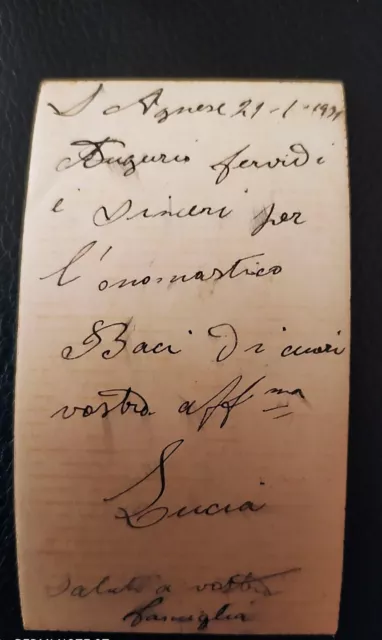 S Agnese 21-1-1931
Augurio fervidi
e Sinceri per
l'onomastico
Baci di cuori
vostra affma
Lucia
Saluto a vostra
famiglia